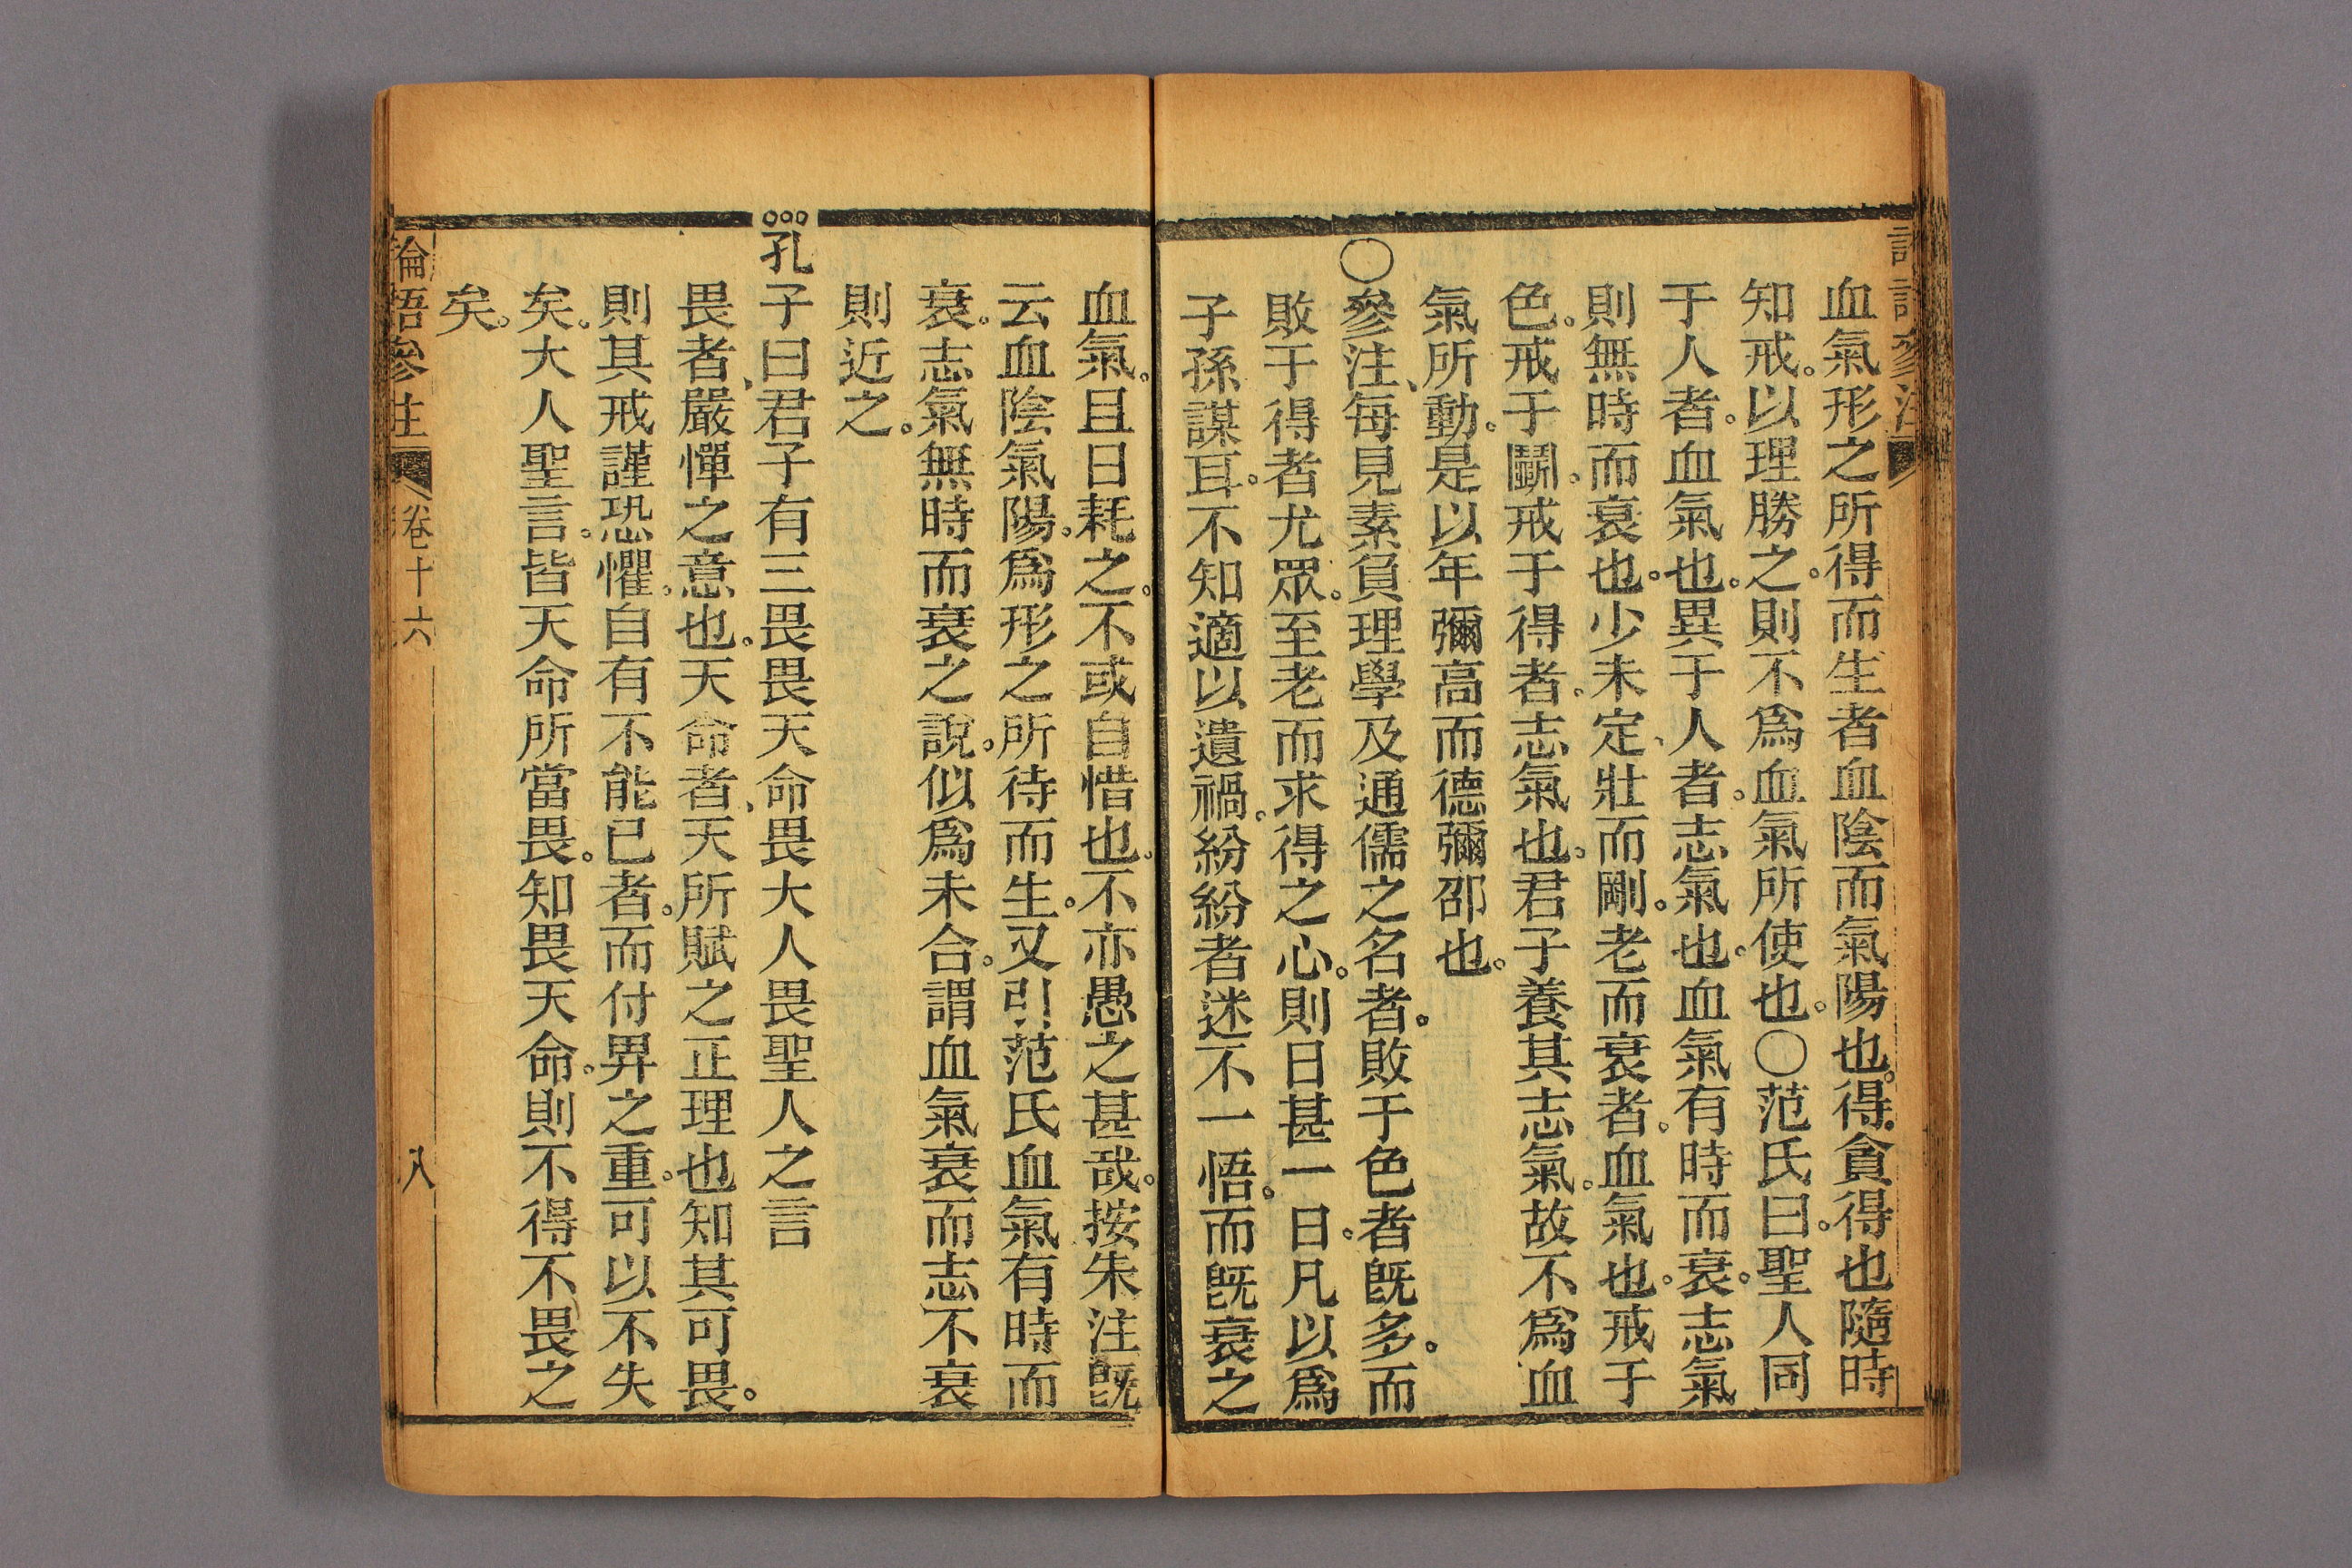 血氣形之所得而生者血陰而氣陽也。得。貪得也隨時
知戒。以理勝之。則不爲血氣所使也。○范氏曰。聖人同
于人者。血氣也。異于人者。志氣也。血氣有時而衰。志氣
則無時而衰也。少未定、壯而剛。老而衰者。血氣也。戒于
色。戒于鬭。戒于得者。志氣也。君子養其志氣。故不爲血
氣所動。是以年彌高而德彌邵也。
○參注、每見素負理學及通儒之名者。敗于色者旣多。而
敗于得者尤眾。至老而求得之心。則日甚一日。凡以爲
子孫謀耳。不知適以遺禍。紛紛者迷不一悟。而旣衰之
血氣。且日耗之。不或自惜也。不亦愚之甚哉。按朱注旣
云血陰氣陽。爲形之所待而生。又引范氏血氣有時而
衰。志氣無時而衰之說。似爲未合。謂血氣衰而志不衰
則近之。
孔子曰君子有三畏畏天命畏大人畏聖人之言
畏者、嚴憚之意也。天命者、天所賦之正理也知其可畏。
則其戒謹恐懼。自有不能已者。而付畀之重。可以不失
矣。大人聖言。皆天命所當畏。知畏天命。則不得不畏之
矣。
論語參注 卷十六 八